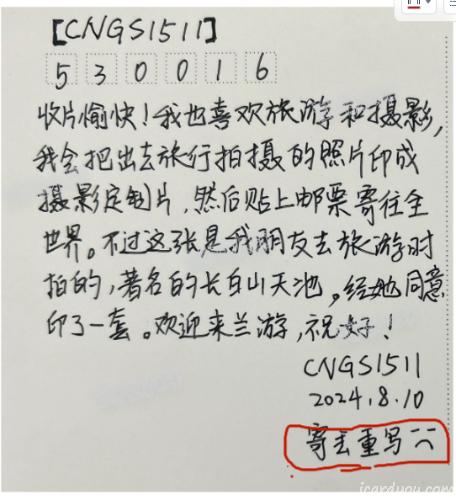 [CNGS1511]
530016
收片愉快!我也喜欢旅游和摄影,
我会把出去旅行拍摄的照片印成
摄影定制片,然后贴上邮票寄往全
世界。不过这张是我朋友去旅游时
拍的,著名的长白山天池,经她同意
印了一套。欢迎来兰游,祝好!
CNGS1511
2024.8.10
寄丢重写
icardyou.com